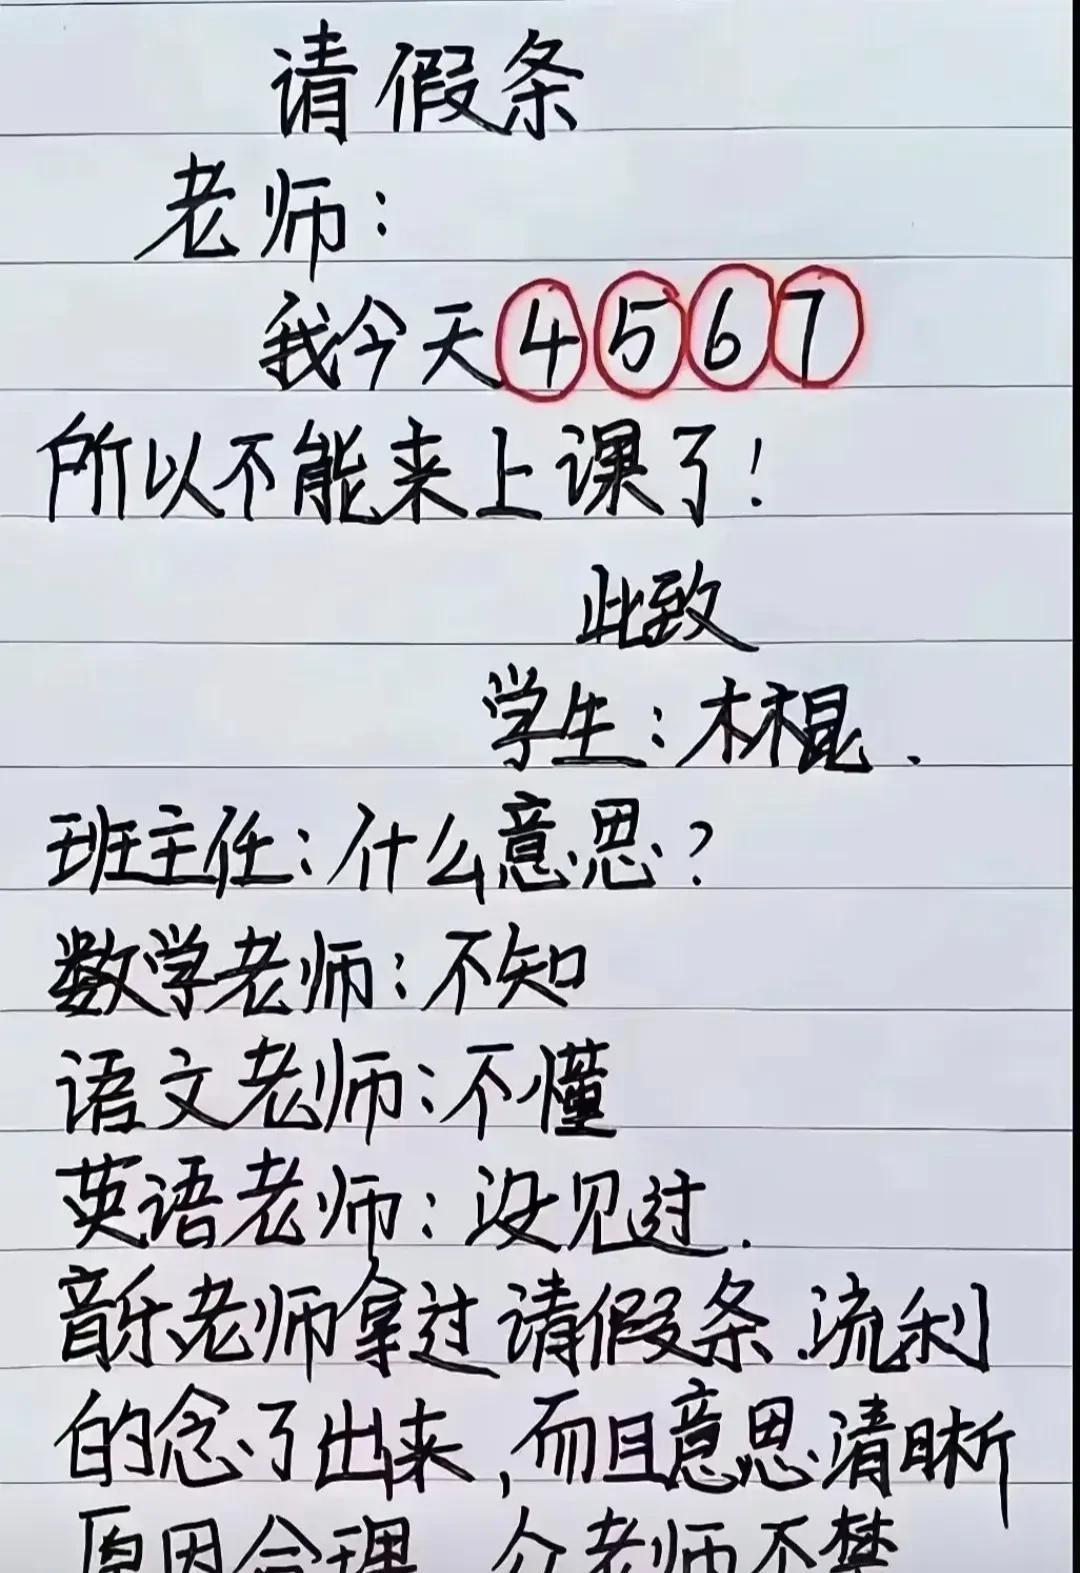 请假条
老师：
我今天④⑤⑥⑦
所以不能来上课了！
此致
学生：林棍.
班主任：什么意思？
数学老师：不知
语文老师：不懂
英语老师：没见过.
音乐老师拿过请假条.流利
的念了出来,而且意思清晰
原因合理 众老师不禁